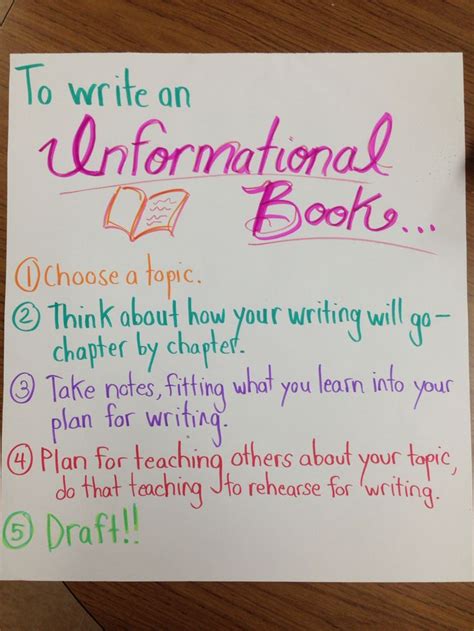 To write an
Informational
Book...
① Choose a topic.
② Think about how your writing will go—
chapter by chapter.
③ Take notes, fitting what you learn into your
plan for writing.
④ Plan for teaching others about your topic,
do that teaching to rehearse for writing.
⑤ Draft!!